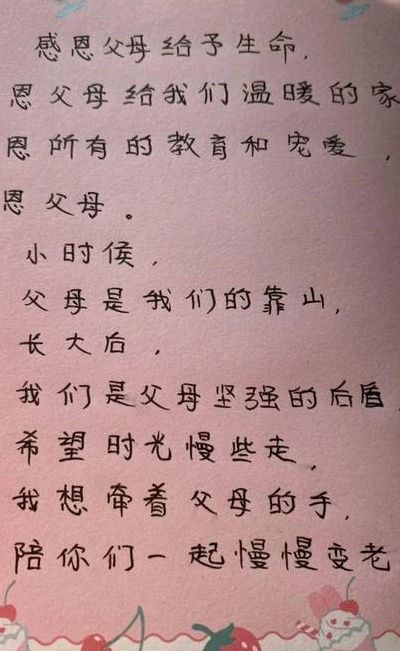 感恩父母给予生命,
恩父母给我们温暖的家
恩所有的教育和宠爱,
恩父母。
小时候,
父母是我们的靠山,
长大后,
我们是父母坚强的后盾,
希望时光慢些走,
我想牵着父母的手,
陪你们一起慢慢变老